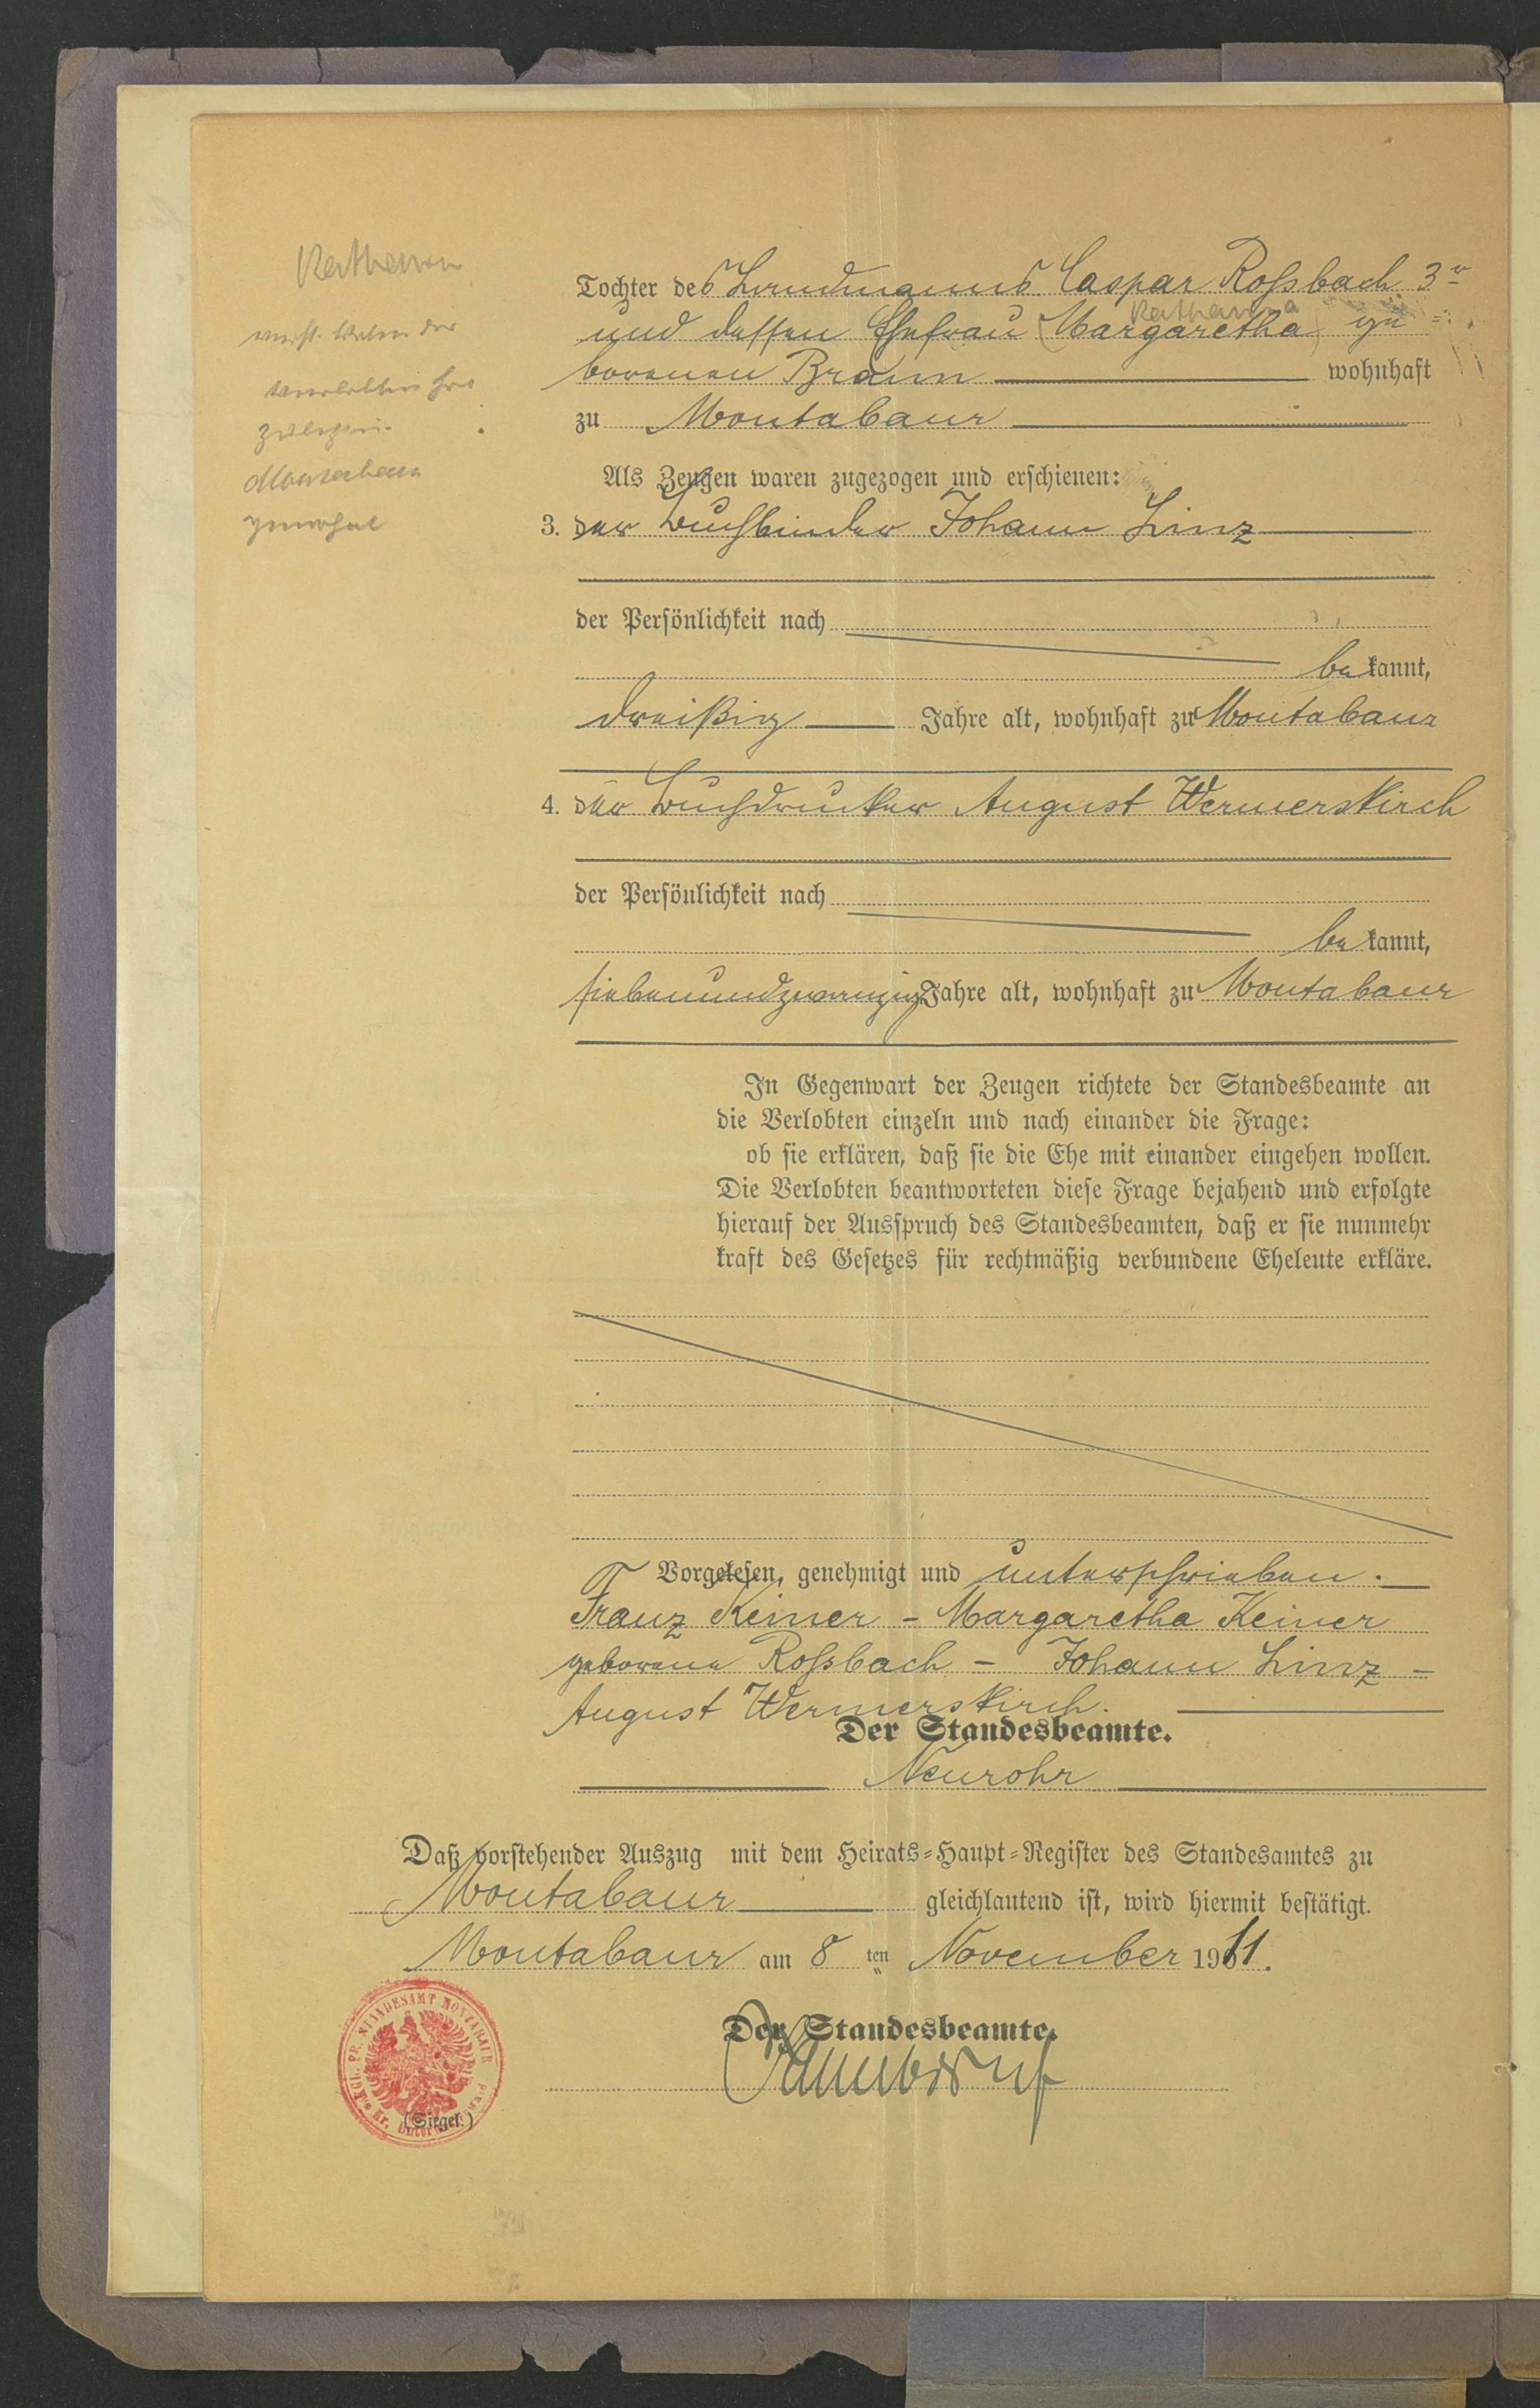 Katharina
verst. Vater der
Verlobten hat
zuletzt in
Montabaur
gewohnt
Tochter des Landmanns Caspar Roßbach 3r
Katharina
und dessen Ehefrau (Margaretha) ge=
borenen Braun wohnhaft
zu Montabaur
Als Zeugen waren zugezogen und erschienen:
3. der Buchbinder Johann Linz
der Persönlichkeit nach
be kannt,
dreißig Jahre alt, wohnhaft zu Montabaur
4. der Buchdrucker August Wermerskirch
der Persönlichkeit nach
be kannt,
siebenundzwanzig Jahre alt, wohnhaft zu Montabaur
In Gegenwart der Zeugen richtete der Standesbeamte an
die Verlobten einzeln und nach einander die Frage:
ob sie erklären, daß sie die Ehe mit einander eingehen wollen.
Die Verlobten beantworteten diese Frage bejahend und erfolgte
hierauf der Ausspruch des Standesbeamten, daß er sie nunmehr
kraft des Gesetzes für rechtmäßig verbundene Eheleute erkläre.
Vorgelesen, genehmigt und unterschrieben.
Franz Keiner - Margaretha Keiner
geborene Roßbach - Johann Linz -
August Wermerskirch.
Der Standesbeamte.
Neurohr
Daß vorstehender Auszug mit dem Heirats-Haupt-Register des Standesamtes zu
Montabaur gleichlautend ist, wird hiermit bestätigt.
Montabaur am 8 ten November 1911.
KGL. PR. STANDESAMT MONTABAUR
(Siegel.)
Der Standesbeamte.